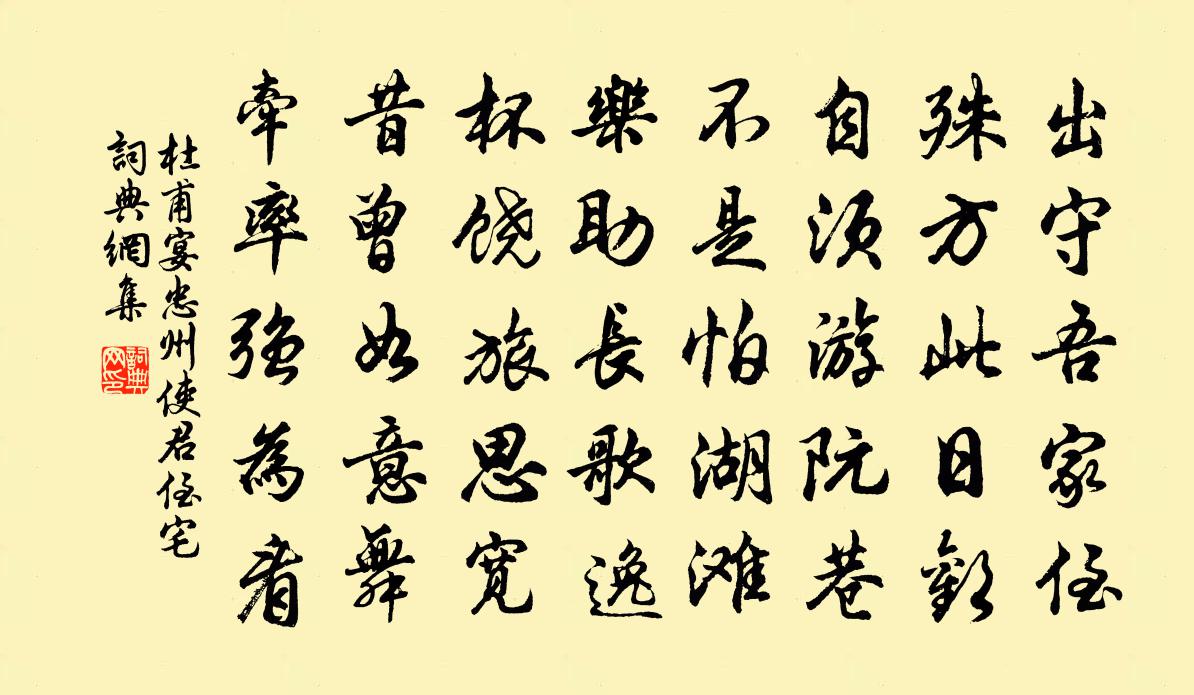 出守吾家侄
殊方此日歡
自须游阮巷
不是怕湖滩
樂助長歌逸
杯饶旅思寬
昔曾如意舞
牽率强為看
杜甫宴忠州使君侄宅
詞典網集
詞典网印